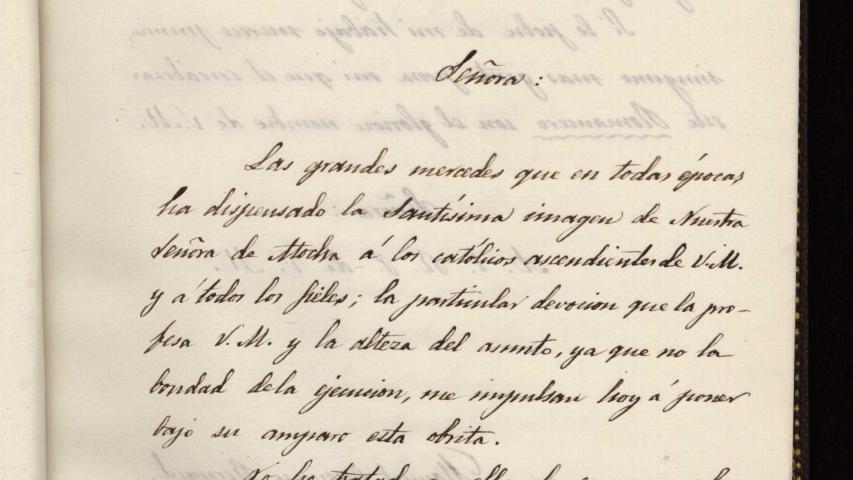 Señora:
Las grandes mercedes que en todas épocas
ha dispensado la Santísima imagen de Nuestra
Señora de Atocha á los católicos ascendientes de V. M.
y á todos los fieles; la particular devocion que la pro-
fesa V. M. y la alteza del asunto, ya que no la
bondad de la ejecucion, me impulsan hoy á poner
bajo su amparo esta obrita.
No he tratado